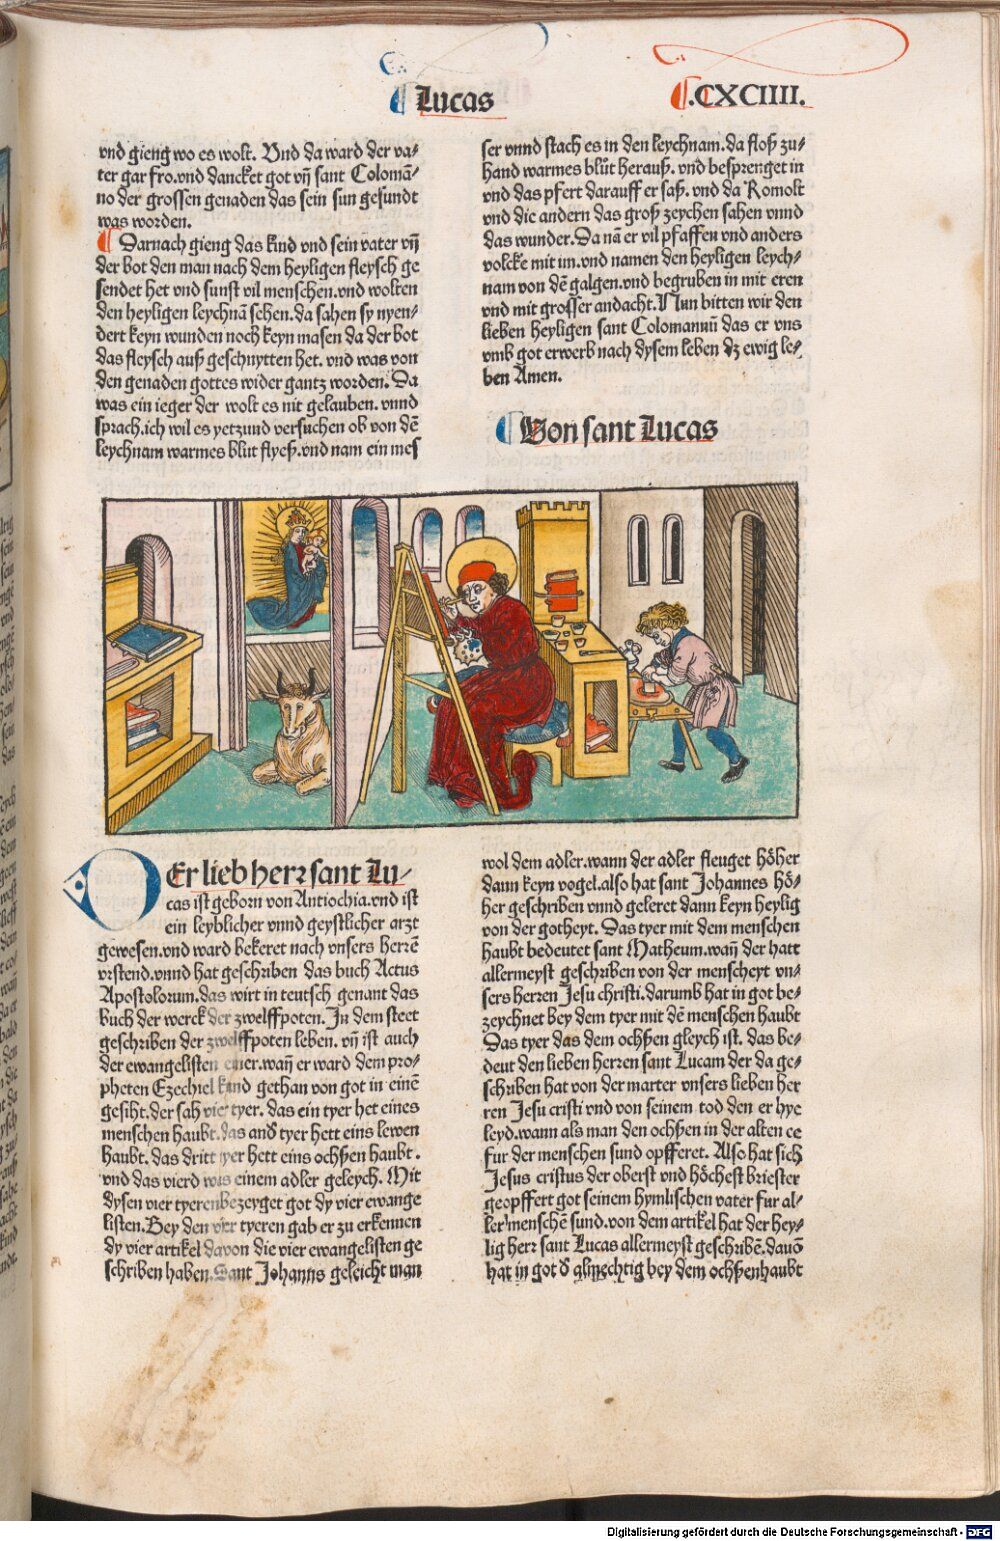 Lucas
.CXCIIII.
vnd gieng wo es wolt. Vnd da ward der va-
ter gar fro.vnd dancket got vñ sant Colomã-
no der grossen genaden das sein sun gesundt
was worden.
Darnach gieng das kind vnd sein vater vñ
der bot den man nach dem heyligen fleysch ge
sendet het vnd sunst vil menschen.vnd wolten
den heyligen leychnã sehen.da sahen sy nyen-
dert keyn wunden noch keyn masen da der bot
das fleysch auß geschnytten het. vnd was von
den genaden gottes wider gantz worden. Da
was ein ieger der wolt es nit gelauben. vnnd
sprach.ich wil es yetzund versuchen ob von dẽ
leychnam warmes blůt flyeß.vnd nam ein mes
ser vnnd stach es in den leychnam.da floß zu-
hand warmes blůt herauß. vnd besprenget in
vnd das pfert darauff er saß. vnd da Romolt
vnd die andern das groß zeychen sahen vnnd
das wunder.Da nã er vil pfaffen vnd anders
volcke mit im.vnd namen den heyligen leych-
nam von dẽ galgen.vnd begruben in mit eren
vnd mit grosser andacht.Nun bitten wir den
lieben heyligen sant Colomannũ das er vns
vmb got erwerb nach dysem leben dz ewig le-
ben Amen.
Von sant Lucas
DEr lieb herr sant Lu-
cas ist geborn von Antiochia.vnd ist
ein leyblicher vnnd geystlicher arzt
gewesen.vnd ward bekeret nach vnsers herrẽ
vrstend.vnnd hat geschriben das buch Actus
Apostolorum.das wirt in teutsch genant das
buch der werck der zwelffpoten. In dem steet
geschriben der zwelffpoten leben. vñ ist auch
der ewangelisten einer.wañ er ward dem pro-
pheten Ezechiel kund gethan von got in einẽ
gesiht.der sah vier tyer. das ein tyer het eines
menschen haubt.das and͂ tyer hett eins lewen
haubt. das dritt tyer hett eins ochßen haubt.
vnd das vierd was einem adler geleych. Mit
dysen vier tyeren bezeyget got dy vier ewange
listen. Bey den vier tyeren gab er zu erkennen
dy vier artikel davon die vier ewangelisten ge
schriben haben. Sant Johanns geleicht man
wol dem adler.wann der adler fleuget höher
dann keyn vogel.also hat sant Johannes hö-
her geschriben vnnd geleret dann keyn heylig
von der gotheyt. Das tyer mit dem menschen
haubt bedeutet sant Matheum.wañ der hatt
allermeyst geschriben von der menscheyt vn-
sers herren Jesu christi.darumb hat in got be-
zeychnet bey dem tyer mit dẽ menschen haubt
Das tyer das dem ochßen gleych ist. das be-
deut den lieben herren sant Lucam der da ge-
schriben hat von der marter vnsers lieben her
ren Jesu cristi vnd von seinem tod den er hye
leyd.wann als man den ochßen in der alten ee
fur der menschen sund opfferet. Also hat sich
Jesus cristus der oberst vnd höchest briester
geopffert got seinem hymlischen vater fur al-
ler menschẽ sund.von dem artikel hat der hey-
lig herr sant Lucas allermeyst geschribẽ.dauõ
hat in got d͂ almechtig bey dem ochßenhaubt
Digitalisierung gefördert durch die Deutsche Forschungsgemeinschaft - DFG